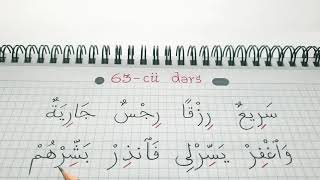 63-cü dərs
سَرِيعٌ رِزْقًا رِجْسٌ جَارِيَةٌ
وَٱغْفِرْ يَسِّرْلِى فَأَنذِرْ بَشِّرْهُمْ